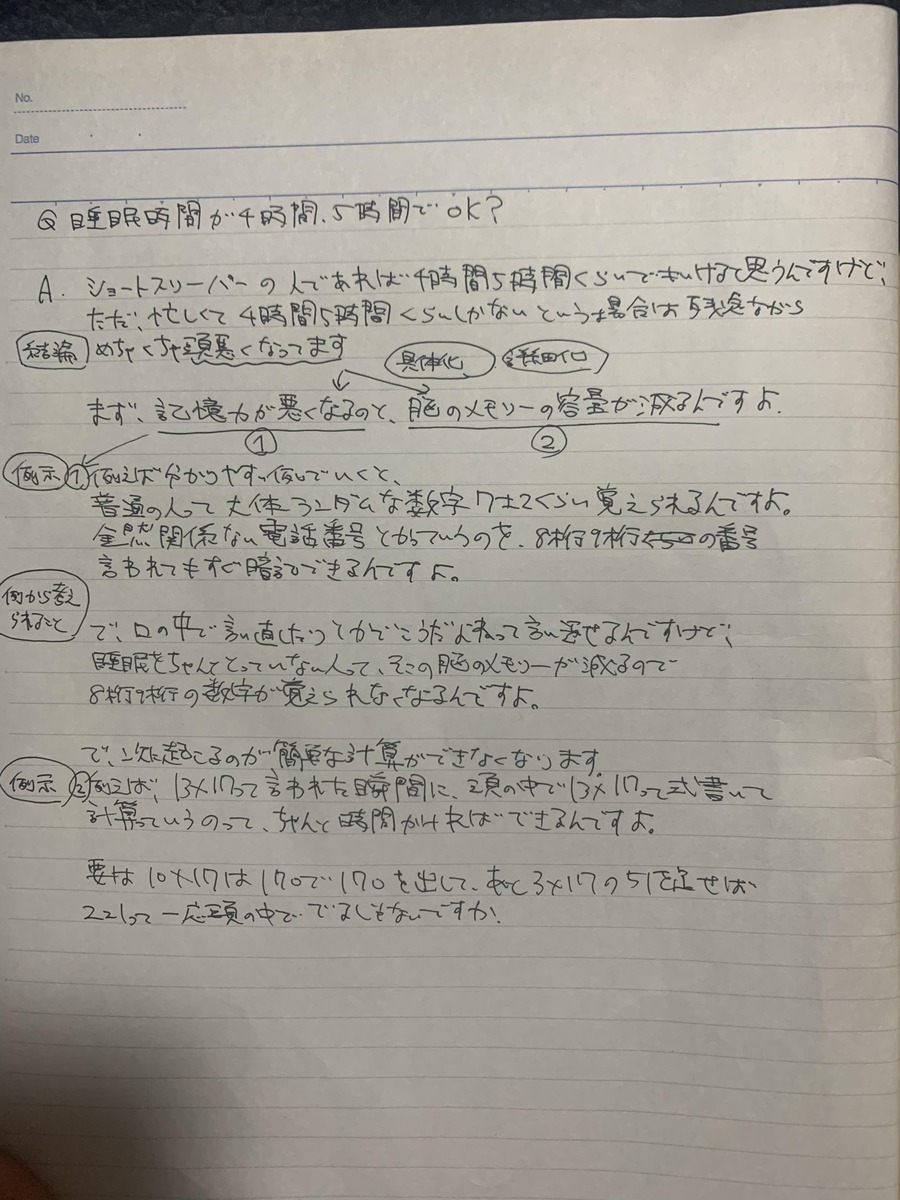 No.
Date
Q 睡眠時間が4時間、5時間でOK?
A. ショートスリーパーの人であれば4時間5時間くらいでもいけると思うんですけど、
ただ、忙しくて4時間5時間くらいしかないという場合は残念ながら
結論 めちゃくちゃ頭悪くなってます
具体化 詳細化
まず、記憶力が悪くなるのと、脳のメモリーの容量が減るんですよ.
① ②
例示 ① 例えば分かりやすい例でいくと、
普通の人って大体ランダムな数字7±2くらい覚えられるんですよ。
全然関係ない電話番号とかっていうのを、8桁9桁の番号
言われてもすぐ暗記できるんですよ。
例から考え
られること
で、口の中で言い直したりとかでこうだよねって言い返せるんですけど、
睡眠をちゃんととっていない人って、そこの脳のメモリーが減るので
8桁9桁の数字が覚えられなくなるんですよ。
で、次に起こるのが簡単な計算ができなくなります
例示 ② 例えば、13×17って言われた瞬間に、頭の中で13×17って式書いて
計算っていうのって、ちゃんと時間かければできるんですよ。
要は10×17は170で170を出して、あと3×17の51を足せば
221って一応頭の中ででるじゃないですか.